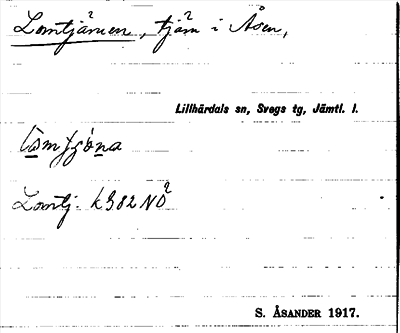 Lomtjärnen, tjärn i Åsen,
Lillhärdals sn, Svegs tg, Jämtl. l.
Lomtj. k382NO²
S. ÅSANDER 1917.